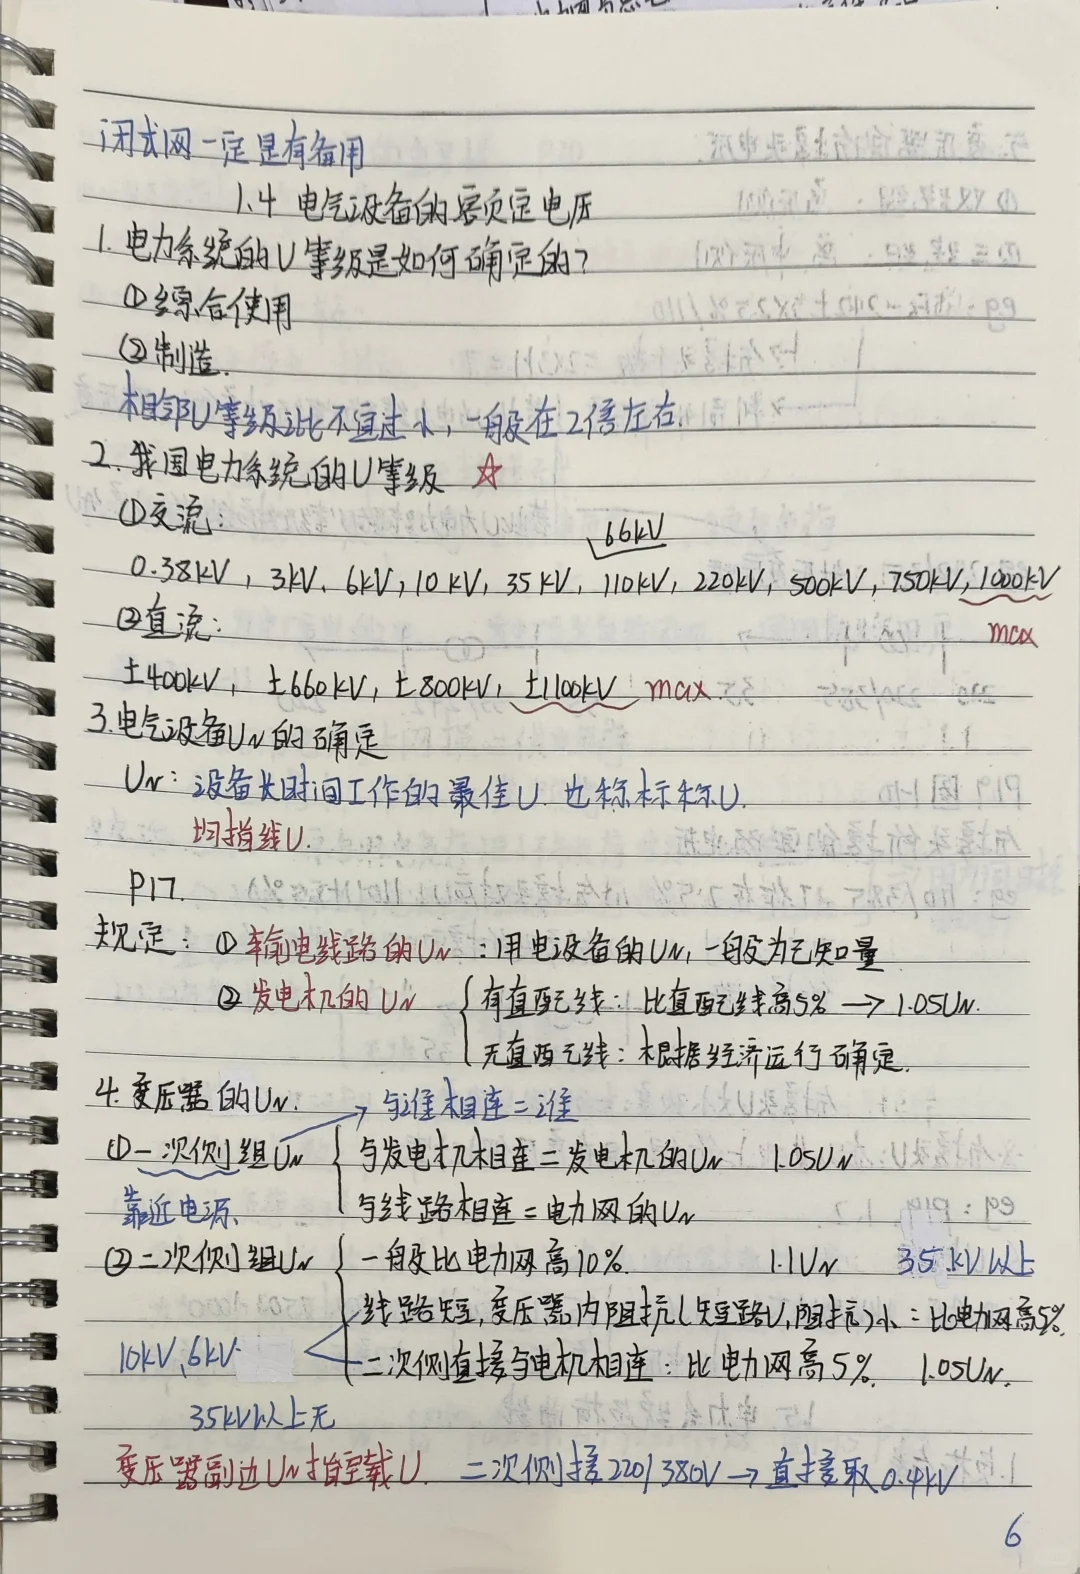 闭式网一定是有备用
1.4 电气设备的额定电压
1. 电力系统的U等级是如何确定的?
①综合使用
②制造.
相邻U等级之比不宜过小, 一般在2倍左右.
2. 我国电力系统的U等级 ☆
①交流:
66kV
0.38kV, 3kV. 6kV, 10kV, 35kV, 110kV, 220kV, 500kV, 750kV, 1000kV
max
②直流:
±400kV, ±660kV, ±800kV, ±1100kV max.
3.电气设备UN的确定
UN: 设备长时间工作的最佳U. 也称标称U.
均指线U.
P17.
规定: ①输电线路的UN :用电设备的UN, 一般为已知量
②发电机的UN { 有直配线: 比直配线高5% → 1.05UN.
无直配线: 根据经济运行确定.
4. 变压器的UN.
与谁相连=谁
①一次侧组UN { 与发电机相连=发电机的UN 1.05UN
靠近电源. 与线路相连=电力网的UN
②二次侧组UN { 一般比电力网高10%. 1.1UN 35kV以上
线路短, 变压器内阻抗(短路U, 阻抗)小: 比电力网高5%.
10kV, 6kV. 二次侧直接与电机相连: 比电力网高5%. 1.05UN.
35kV以上无
变压器副边UN指空载U. 二次侧接220/380V → 直接取0.4kV
6